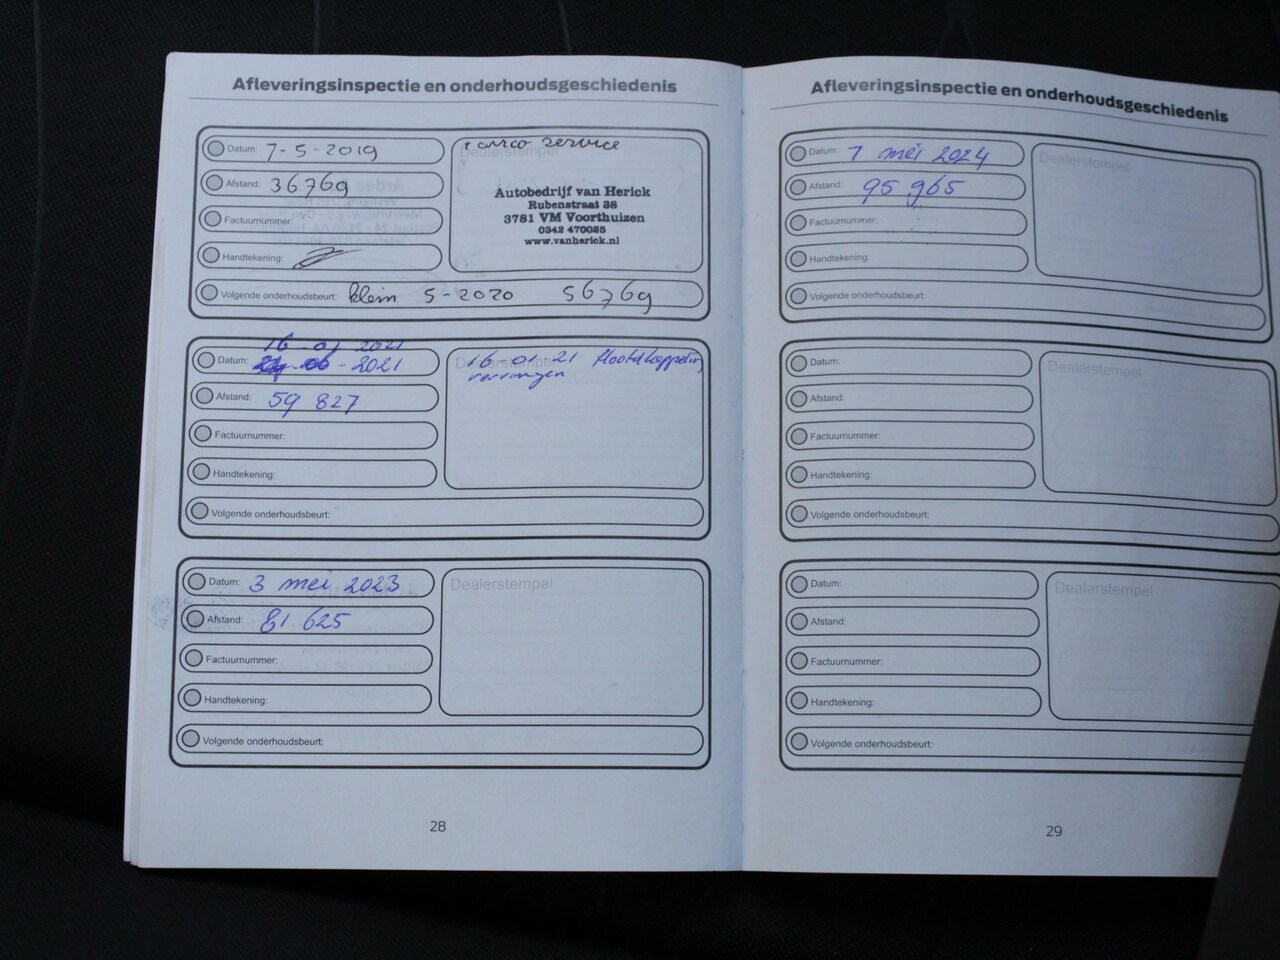 Afleveringsinspectie en onderhoudsgeschiedenis
Datum: 7-5-2019
Afstand: 36769
Factuurnummer:
Handtekening:
service
Dealerstempel
Autobedrijf van Herick
Rubenstraat 38
3781 VM Voorthuizen
0342 470025
www.vanherick.nl
Volgende onderhoudsbeurt: klein 5-2020 56769
16 01 2021
Datum: 2021
Afstand: 59 827
Factuurnummer:
Handtekening:
Dealerstempel
16-01-21 Hoofdkoppeling
vervangen
Volgende onderhoudsbeurt:
Datum: 3 mei 2023
Afstand: 81 625
Factuurnummer:
Handtekening:
Dealerstempel
Volgende onderhoudsbeurt:
28
Afleveringsinspectie en onderhoudsgeschiedenis
Datum: 7 mei 2024
Afstand: 95 965
Factuurnummer:
Handtekening:
Dealerstempel
Volgende onderhoudsbeurt:
Datum:
Afstand:
Factuurnummer:
Handtekening:
Dealerstempel
Volgende onderhoudsbeurt:
Datum:
Afstand:
Factuurnummer:
Handtekening:
Dealerstempel
Volgende onderhoudsbeurt:
29